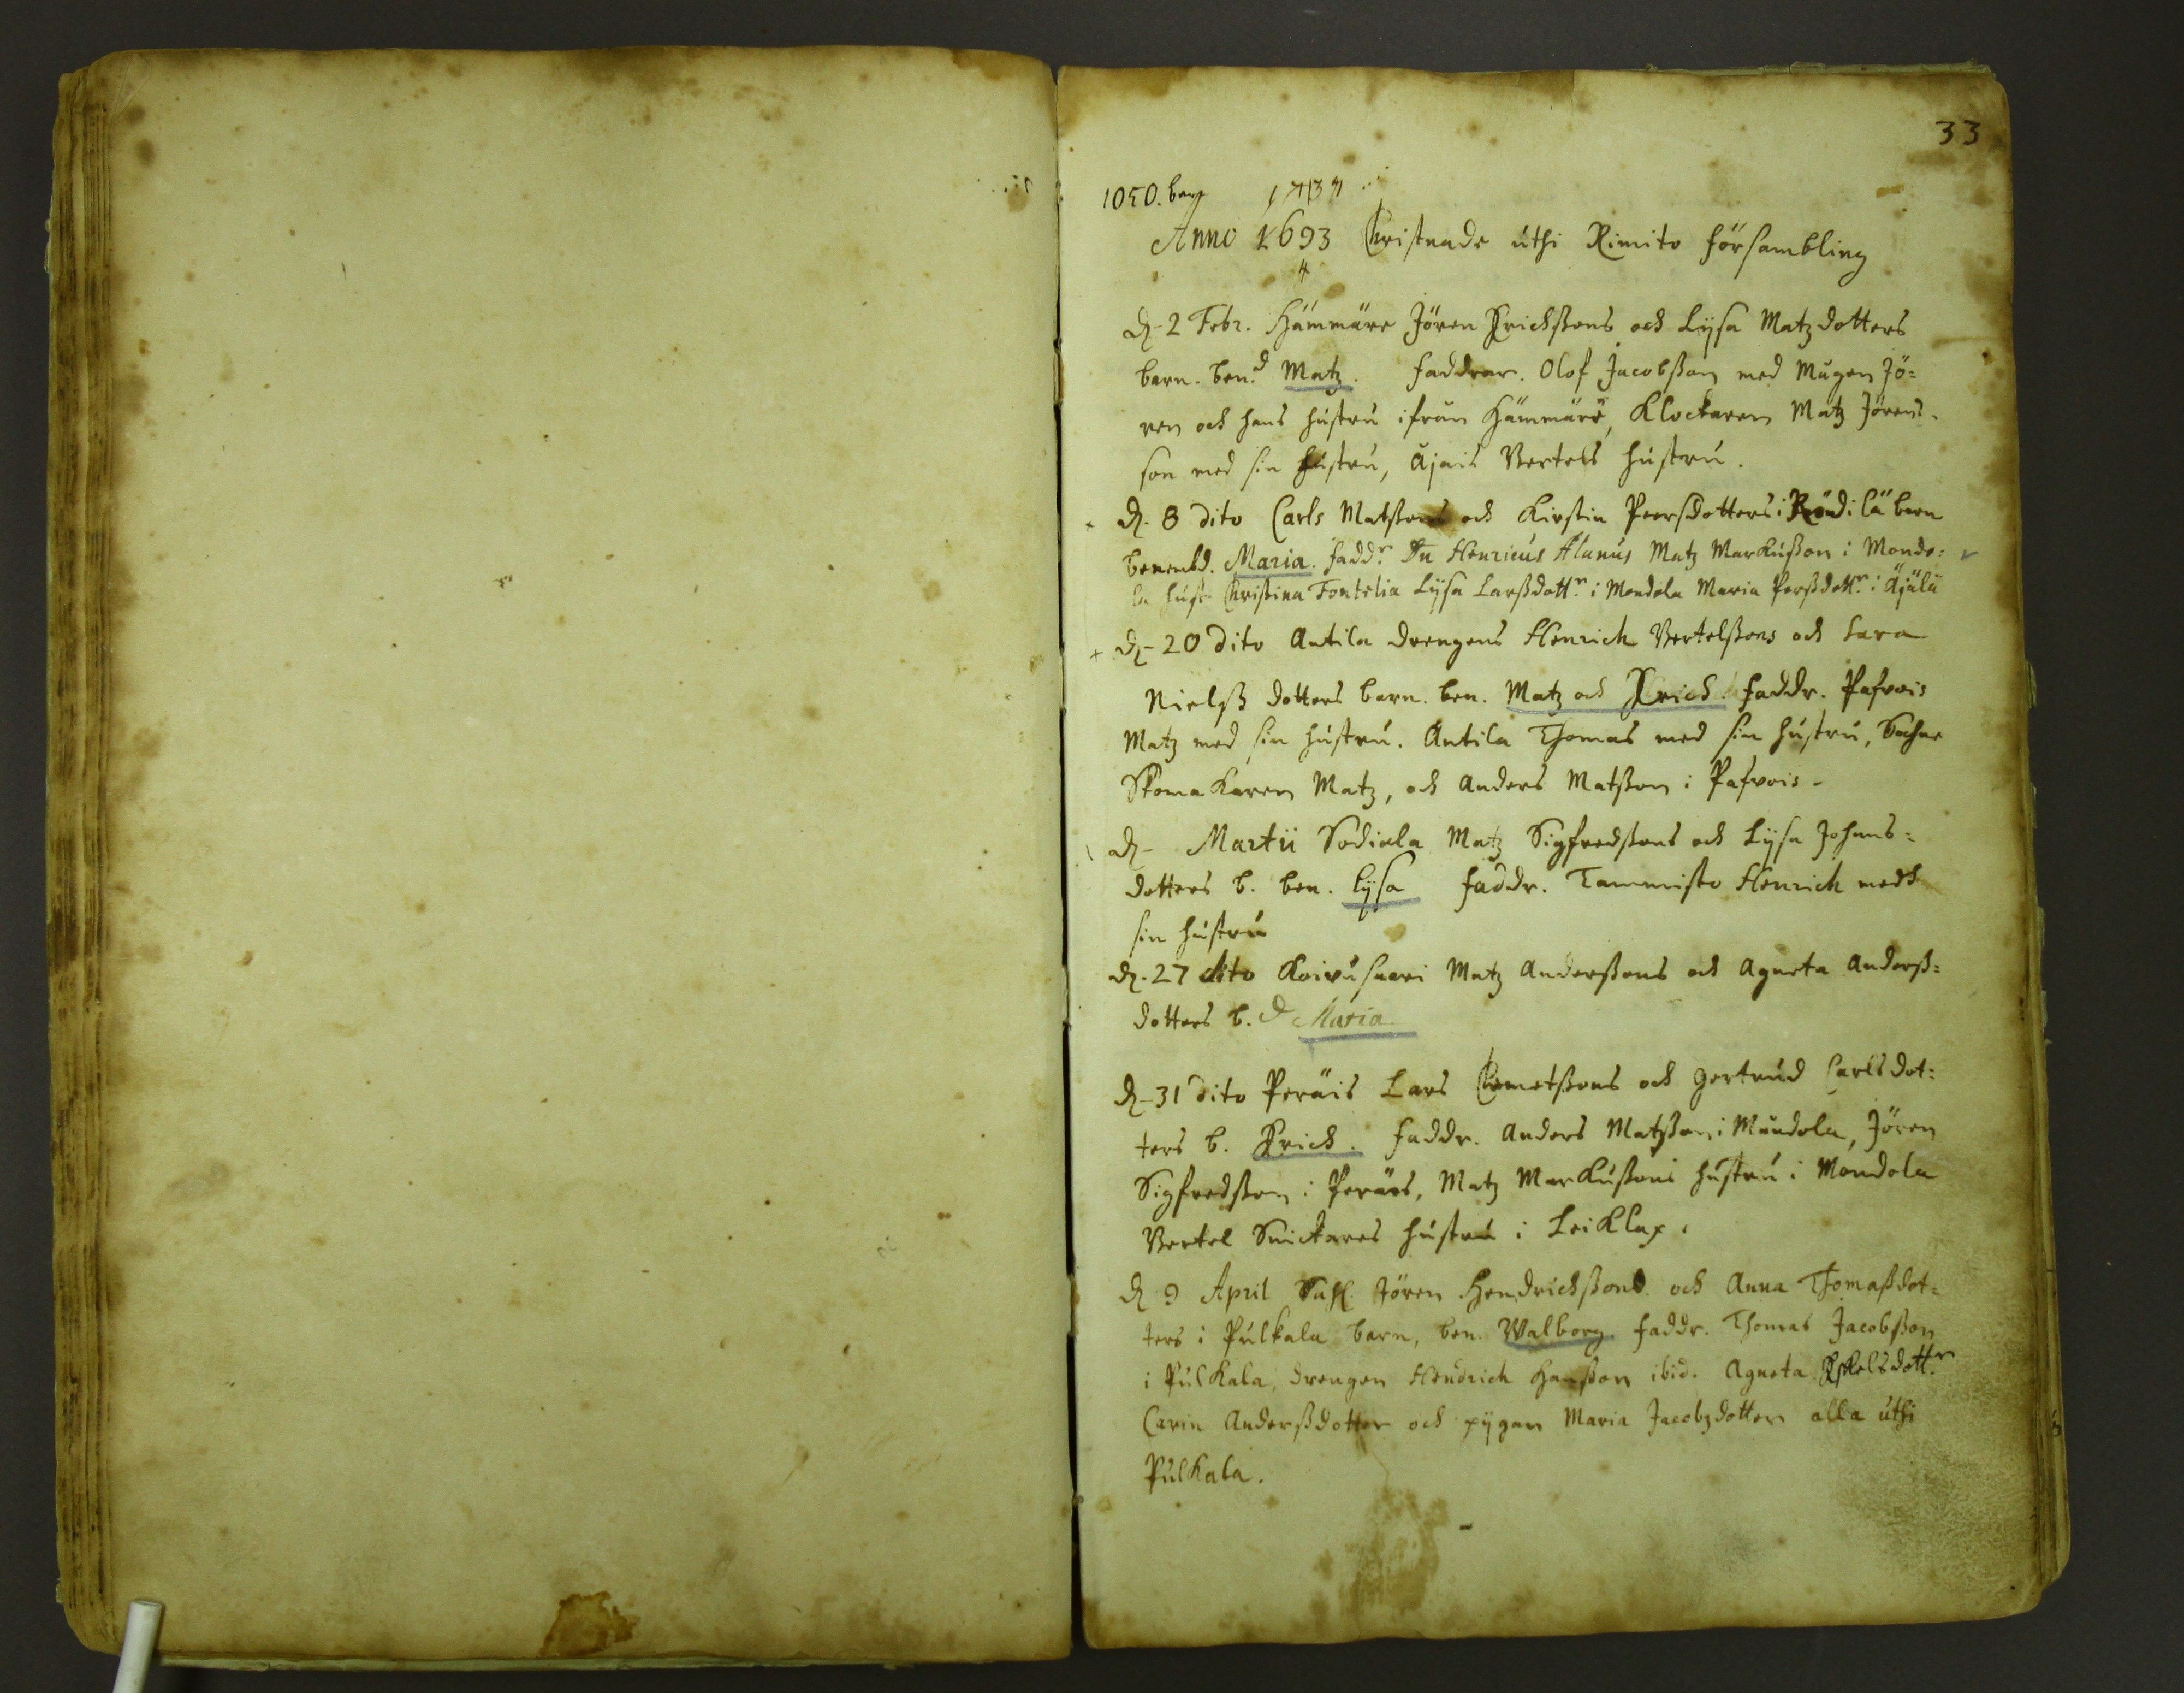 33
1050. barn 1734
Anno 1693 Christnade uthi Rimito försambling
4
D. 2 Febr. Hämmäre Jören Erickßons och Lijsa Matzdotters
barn. ben.d Matz. Faddrar. Olof Jacobßon med Mågen Jö=
ren och hans hustru ifrån Hämmärö, Klockaren Matz Jörens=
son med sin hustru, Äjais Bertels hustru.
D. 8 dito Carls Matßons och Kirstin Peersdotters i Röödilä barn
benembd. Maria. fadd.r Dn Henricus Alanus Matz Markußon i Mondo=
la hust. Christina Fontelia Lijsa Larßdott.r i Mondola Maria Perßdott.r i Äjälä
D. 20 dito Antila drengens Henrich Bertelßons och Sara
Nielß dotters barn. ben. Matz och Erich. Faddr. Pafvois
Matz med sin hustru. Antila Thomas med sin hustru,
Skomakaren Matz, och Anders Matßon i Pafvois.
D. Martii Sodiala Matz Sigfredßons och Lijsa Johans=
dotters b. ben. Lijsa faddr. Tammisto Henrich medh
sin hustru
D. 27 dito Koivusaari Matz Anderßons och Agneta Anderß=
dotters b. Maria
D. 31 dito Peräis Lars Clemetßons och Gertrud Carlsdot=
ters b. Erich. Faddr. Anders Matßon i Mundola, Jören
Sigfredßon i Peräis, Matz Markußons hustru i Mondola
Bertel Snickares hustru i Leiklax.
D 9 April Sahl. Jören Hendrickßons och Anna Thomaßdot=
ters i Pulkala barn, ben. Walborg. faddr. Thomas Jacobßon
i Pulkala, drengen Hendrich Hanßon ibid. Agneta Eskelsdott.r
Carin Anderßdotter och pijgan Maria Jacobzdotter alla uthi
Pulkala.